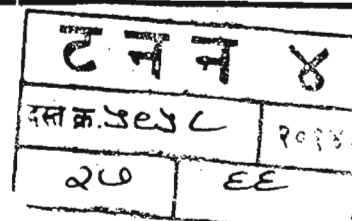 ट न न ४
दस्त क्र. ५९५८ २०१४
२७ ६६